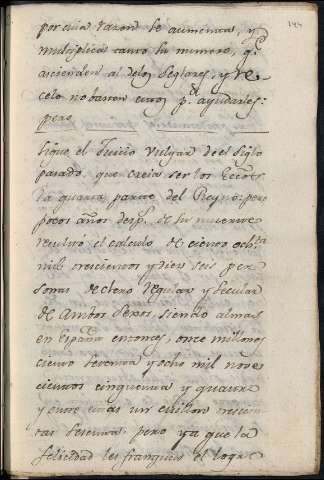 por cuia razon se aumentan, y
multiplican tanto su numero, q.e
ascienden al delos Seglares, y Re
celo no basten estos p.a ayudarles:
pero
sigue el Juicio vulgar de el siglo
pasado, que creia ser los
la quarta parte del Reyno: pero
pocos años desp.s de su muerte
resulto el calculo de ciento och.ta
mil trescientos y diez seis per
sonas de clero Regular y Secular
de Ambos Sexos, siendo almas
en España entonces, once millones
ciento setenta y ocho mil noves
cientos cinquenta y quatro
y entre
pero ya que la
felicidad les franquio el logr